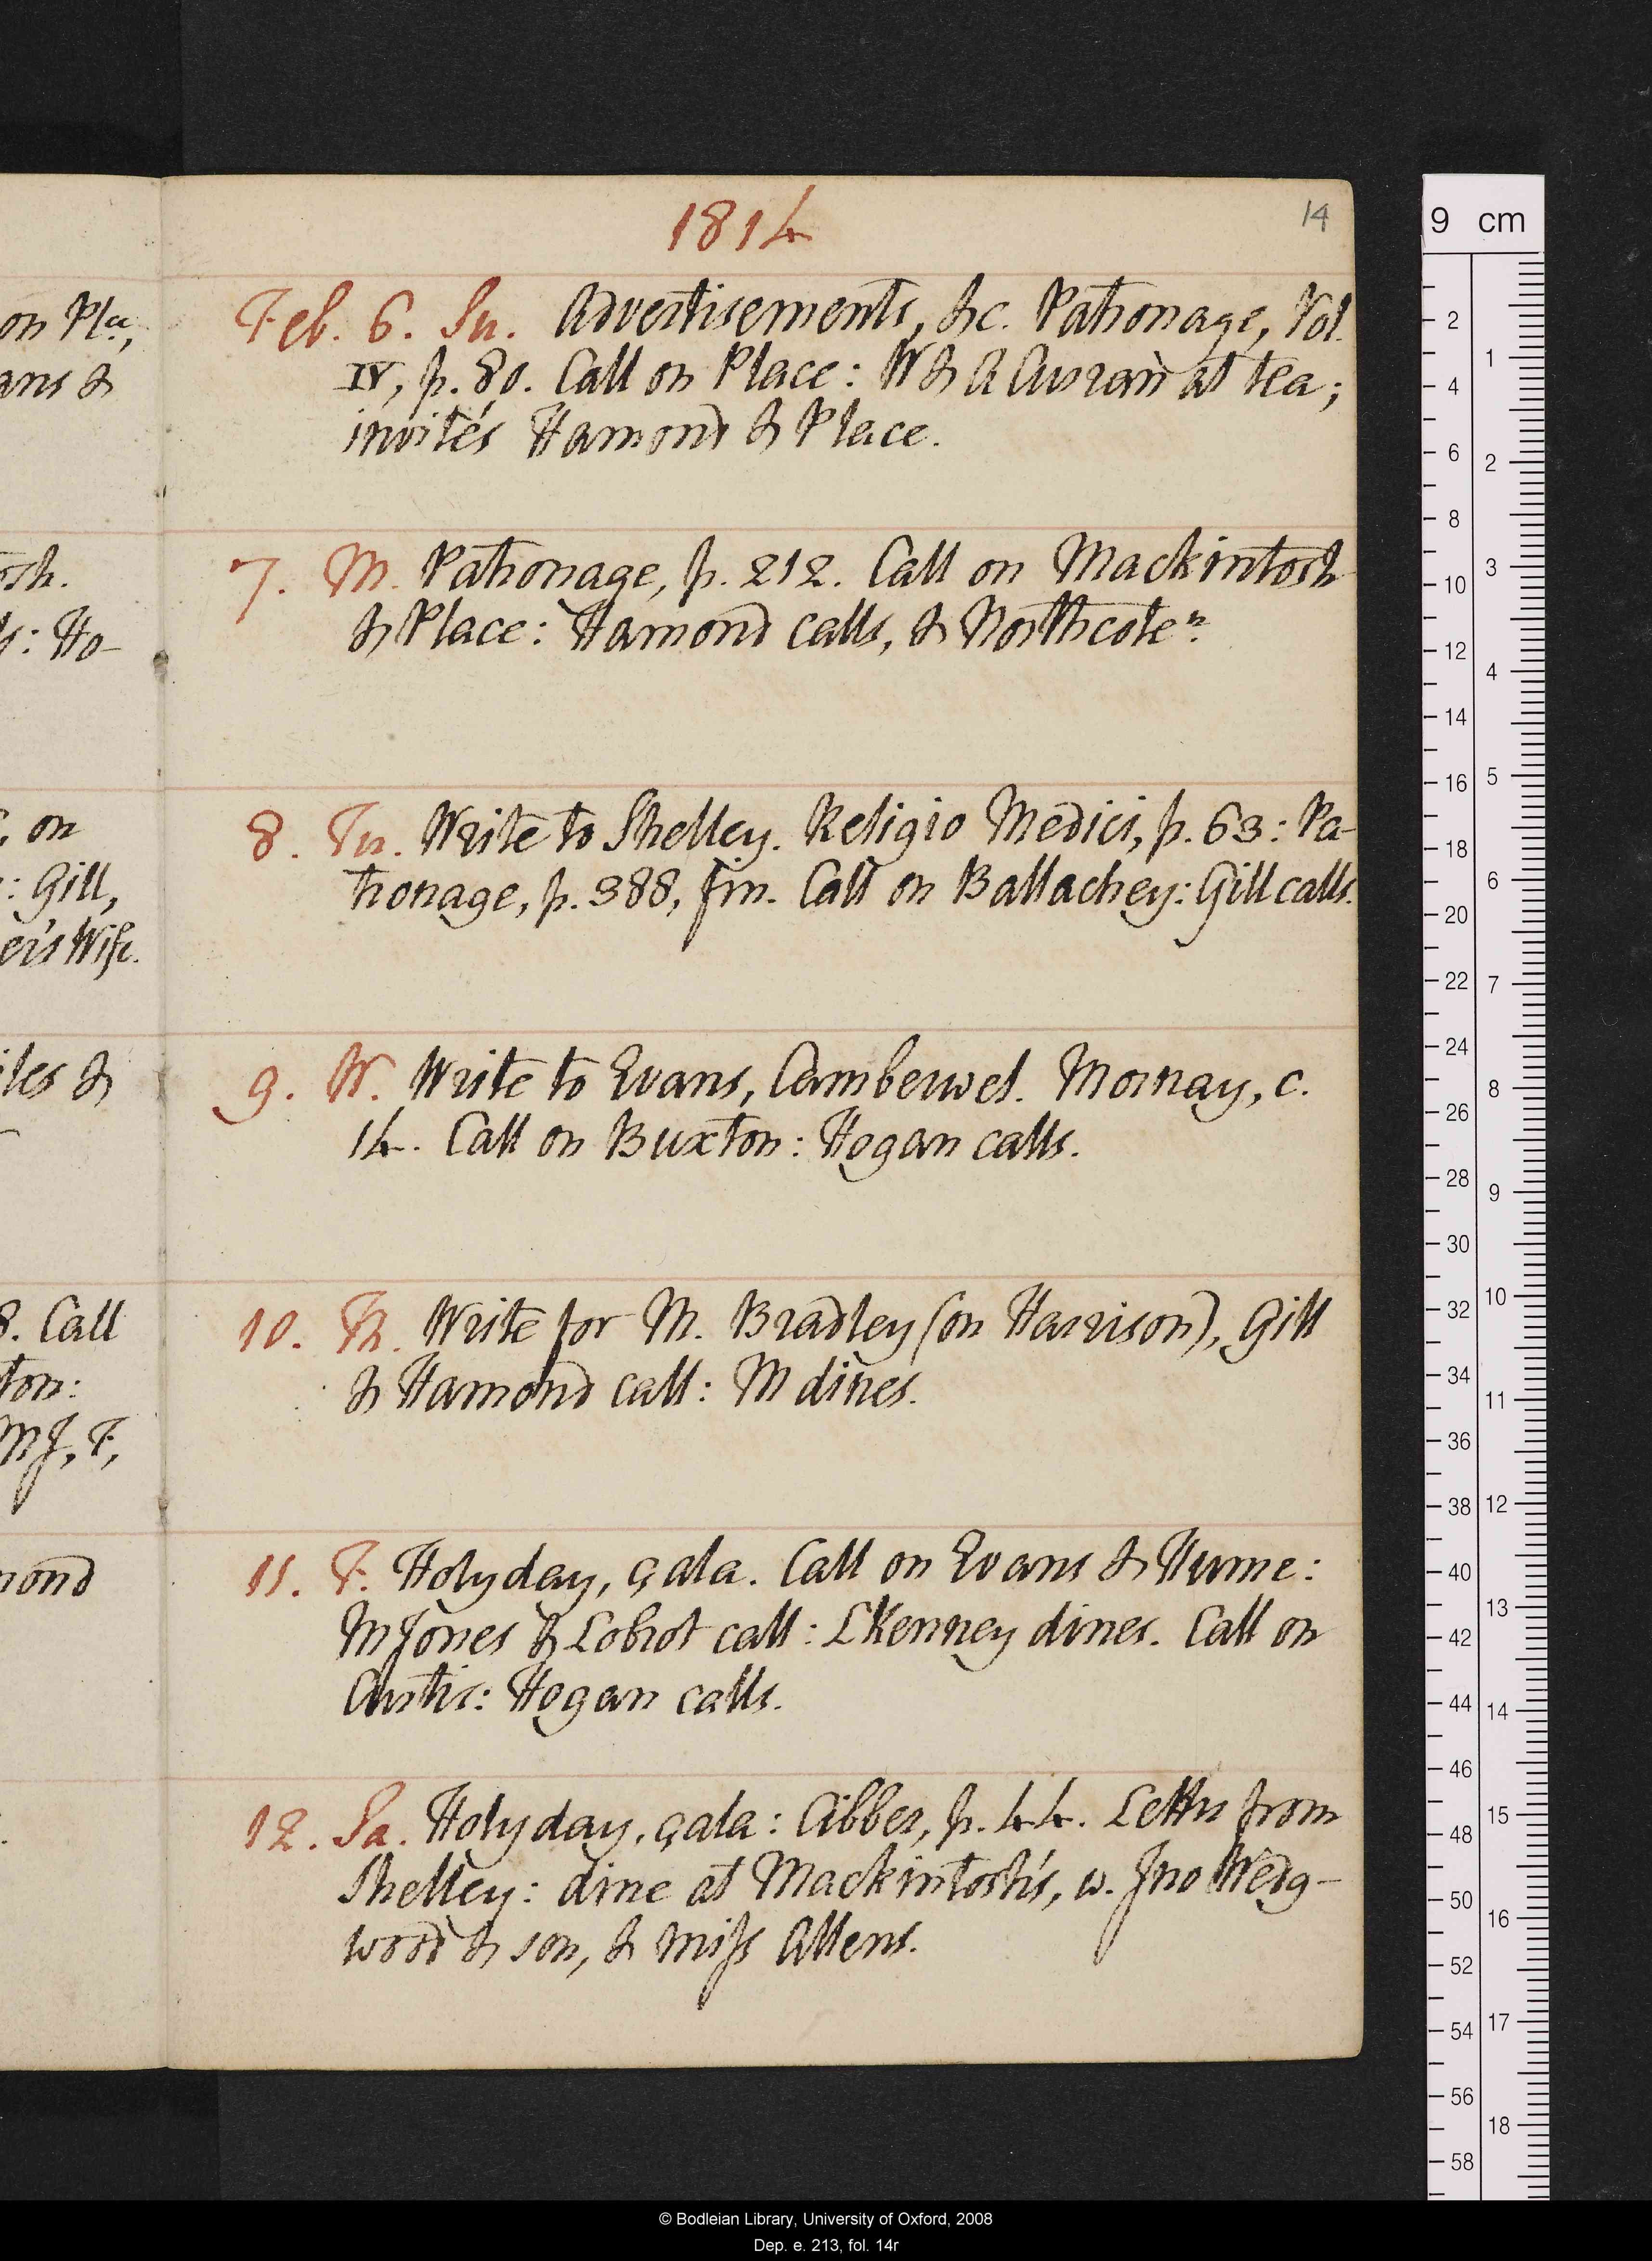 1814
14
Feb. 6. Su. Advertisements, &c. Patronage, Vol.
IV, p. 80. Call on Place: W & A Curran at tea;
invités Hamond & Place.
7. M. Patronage, p. 212. Call on Mackintosh
& Place: Hamond calls, & Northcote n.
8. Tu. Write to Shelley. Religio Medici, p. 63: Pa-
tronage, p. 388, fin. Call on Ballachey: Gill calls.
9. W. Write to Evans, Camberwel. Mornay, c.
14. Call on Buxton: Hogan calls.
10. Th. Write for M. Bradley (on Harrison), Gill
& Hamond call: M dines.
11. F. Holyday, gala. Call on Evans & Hume:
M Jones & Lobrot call: L Kenney dines. Call on
Hogan calls.
12. Sa. Holyday, gala: Cibber, p. 44. Letter from
Shelley: dine at Mackintosh's, w. Jno Wedg-
wood & son, & miss Allens.
on Pla;
ans &
osh.
s: Ho-
, on
: Gill,
er's Wife.
iles &
8. Call
ton:
MJ, F,
mond
9 cm
2
4
6
8
10
12
14
16
18
20
22
24
26
28
30
32
34
36
38
40
42
44
46
48
50
52
54
56
58
1
2
3
4
5
6
7
8
9
10
11
12
13
14
15
16
17
18
© Bodleian Library, University of Oxford, 2008
Dep. e. 213, fol. 14r